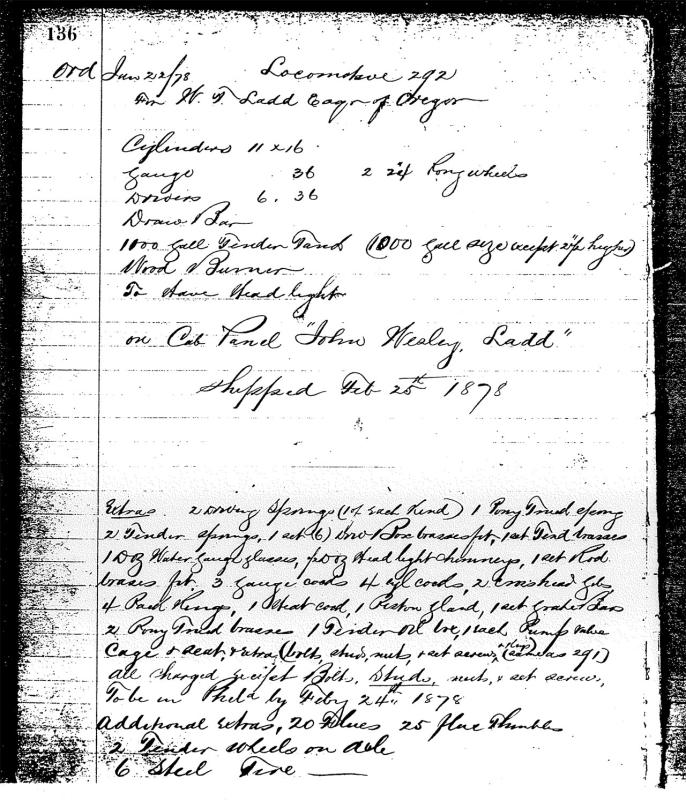 136
Ord Jan 22/78 Locomotive 292
For W. S. Ladd Esqr of Oregon
Cylinders 11 x 16
Gauge 36 2 24 Pony wheels
Drivers 6. 36
Draw Bar
1000 Gall Tender Tank (1000 Gall size except 2" higher)
Wood Burner
To Have Head light
on Cab Panel "John Wesley Ladd"
Shipped Feb 25th 1878
Extras 2 Driving Springs (1 of Each Kind) 1 Pony Truck spring
2 Tender springs, 1 set (6) Driv Box brasses, 1 set Tend brasses
1 Doz Water Gauge glasses, Doz Head light chimneys, 1 set Rod
brases 3 Gauge cocks 4 cocks, 2
4 Rings, 1 Heat cock, 1 Piston Gland, 1 set Grate Bars
2 Pony Truck brasses 1 Tender Oil 1 each Pump Valve
Cage & seat, Extra (bolts, stud, nuts, & set screw, (same as 291)
all charged Bolts, Studs, nuts, & set screw,
To be in Phila by Feby 24th 1878
Additional Extras, 20 Flues 25 flue Thimbles
2 Tender wheels on axle
6 Steel Tire